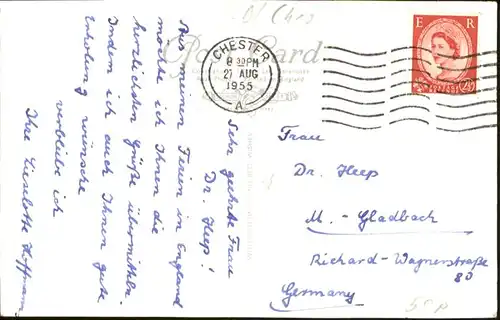 Post Card
CHESTER
8 30 PM
27 AUG
1955
A
E R
Sehr geehrte Frau
Dr. Heep!
Aus meinen Ferien in England
möchte ich Ihnen die
herzlichsten Grüße übermitteln.
Indem ich auch Ihnen gute
Erholung wünsche
verbleibe ich
Ihre Lieselotte Hoffmann
Frau
Dr. Heep
M.-Gladbach
Richard-Wagnerstraße
80
Germany